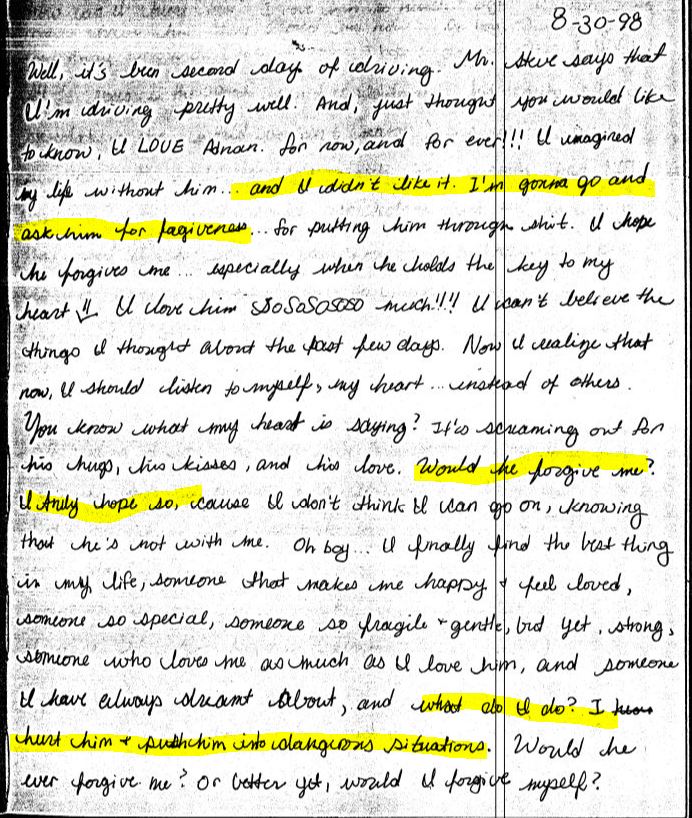 8-30-98
Well, it's been second day of driving. Mr. Steve says that
I'm driving pretty well. And, just thought you would like
to know, I LOVE Adnan. for now, and for ever!!! I imagined
my life without him... and I didn't like it. I'm gonna go and
ask him for fogiveness... for putting him through shit. I hope
he forgives me... especially when he holds the key to my
heart!! I love him SoSoSoSoSo much!!!! I can't believe the
things I thought about the past few days. Now I realize that
now, I should listen to myself, my heart... instead of others.
You know what my heart is saying? It's screaming out for
his hugs, his kisses, and his love. Would he forgive me?
I truly hope so, cause I don't think I can go on, knowing
that he's not with me. Oh boy... I finally find the best thing
in my life, someone that makes me happy + feel loved,
someone so special, someone so fragile + gentle, but yet, strong,
someone who loves me as much as I love him, and someone
I have always dreamt about, and what do I do? I
hurt him + push him into dangerous situations. Would he
ever forgive me? Or better yet, would I forgive myself?